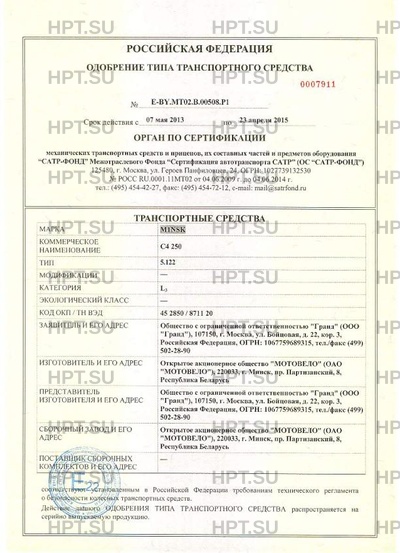 РОССИЙСКАЯ ФЕДЕРАЦИЯ
ОДОБРЕНИЕ ТИПА ТРАНСПОРТНОГО СРЕДСТВА
0007911
№ E-BY.MT02.B.00508.P1
Срок действия с 07 мая 2013 по 23 апреля 2015
ОРГАН ПО СЕРТИФИКАЦИИ
механических транспортных средств и прицепов, их составных частей и предметов оборудования
“САТР-ФОНД” Межотраслевого Фонда “Сертификация автотранспорта САТР” (ОС “САТР-ФОНД”)
125480, г. Москва, ул. Героев Панфиловцев, 24, ОГРН: 1027739132530
№ РОСС RU.0001.11МТ02 от 04.06.2009 г. до 04.06.2014 г.
тел.: (495) 454-42-27, факс: (495) 454-72-12, e-mail: mail@satrfond.ru
ТРАНСПОРТНЫЕ СРЕДСТВА
МАРКА MINSK
КОММЕРЧЕСКОЕ НАИМЕНОВАНИЕ C4 250
ТИП 5.122
МОДИФИКАЦИИ —
КАТЕГОРИЯ L₃
ЭКОЛОГИЧЕСКИЙ КЛАСС —
КОД ОКП / ТН ВЭД 45 2850 / 8711 20
ЗАЯВИТЕЛЬ И ЕГО АДРЕС Общество с ограниченной ответственностью "Гранд" (ООО
"Гранд"), 107150, г. Москва, ул. Бойцовая, д. 22, кор. 3,
Российская Федерация, ОГРН: 1067759689315, тел./факс (499)
502-28-90
ИЗГОТОВИТЕЛЬ И ЕГО АДРЕС Открытое акционерное общество "МОТОВЕЛО" (ОАО
"МОТОВЕЛО"), 220033, г. Минск, пр. Партизанский, 8,
Республика Беларусь
ПРЕДСТАВИТЕЛЬ ИЗГОТОВИТЕЛЯ И ЕГО АДРЕС Общество с ограниченной ответственностью "Гранд" (ООО
"Гранд"), 107150, г. Москва, ул. Бойцовая, д. 22, кор. 3,
Российская Федерация, ОГРН: 1067759689315, тел./факс (499)
502-28-90
СБОРОЧНЫЙ ЗАВОД И ЕГО АДРЕС Открытое акционерное общество "МОТОВЕЛО" (ОАО
"МОТОВЕЛО"), 220033, г. Минск, пр. Партизанский, 8,
Республика Беларусь
ПОСТАВЩИК СБОРОЧНЫХ КОМПЛЕКТОВ И ЕГО АДРЕС —
соответствуют установленным в Российской Федерации требованиям технического регламента
о безопасности колесных транспортных средств.
Действие данного ОДОБРЕНИЯ ТИПА ТРАНСПОРТНОГО СРЕДСТВА распространяется на
серийно выпускаемую продукцию.
E-22
HPT.SU